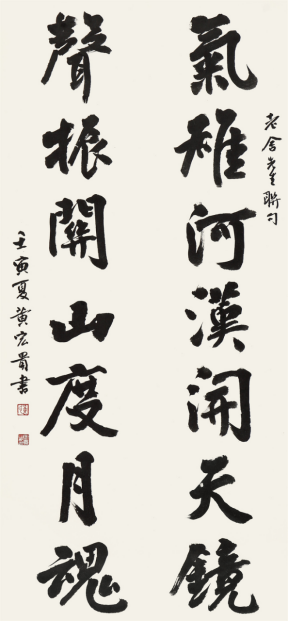 氣雄河漢開天鏡
老舍先生聯句
聲振關山度月魂
壬寅夏黄宏胄書